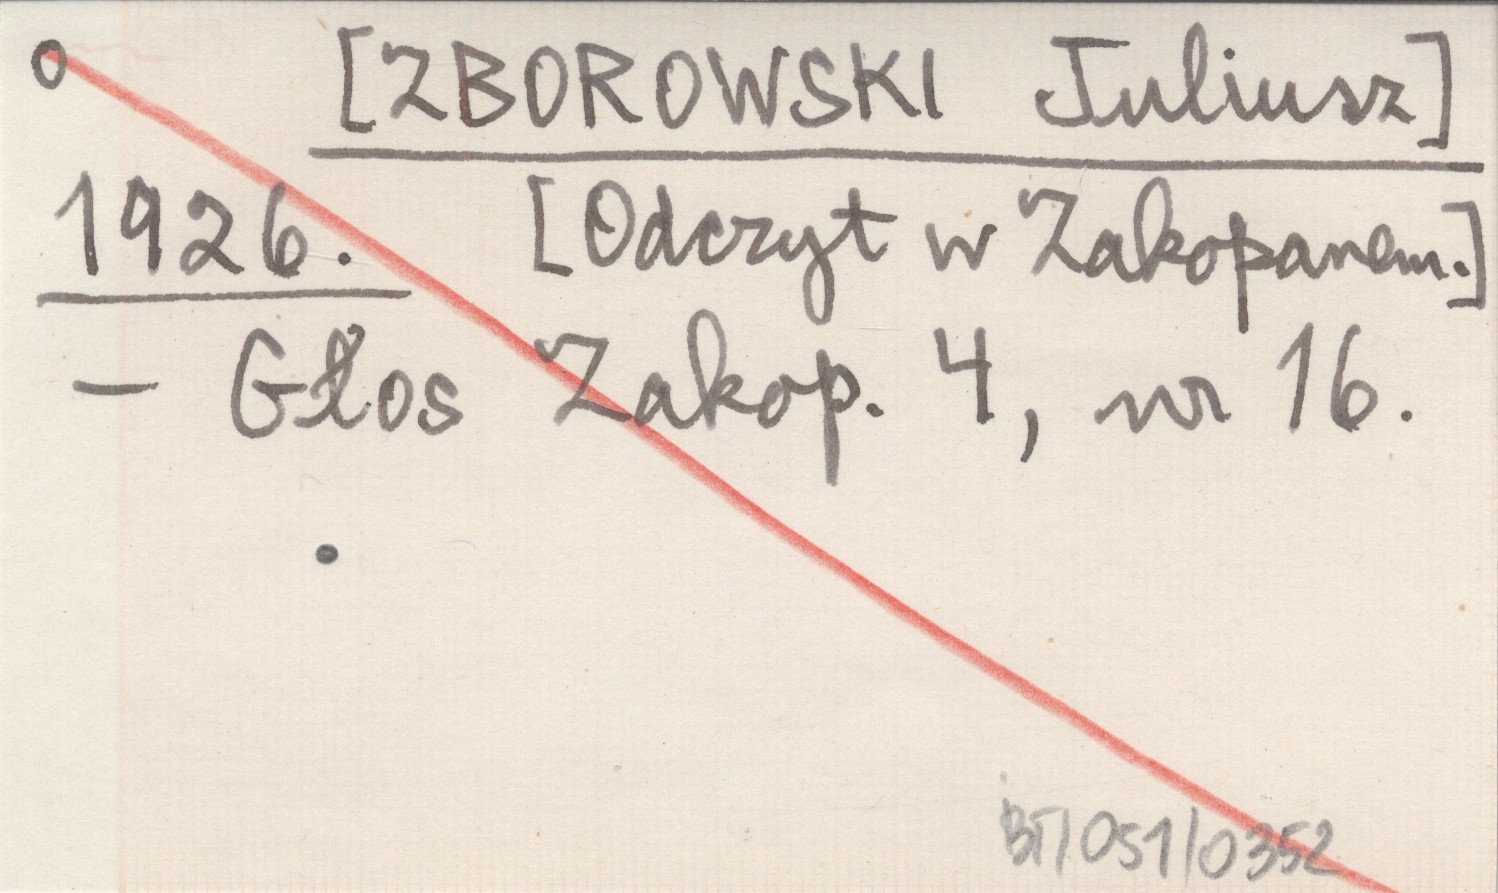 [ZBOROWSKI Juliusz]
1926. [Odczyt w Zakopanem.]
— Głos Zakop. 4, nr 16.
BT/051/0352